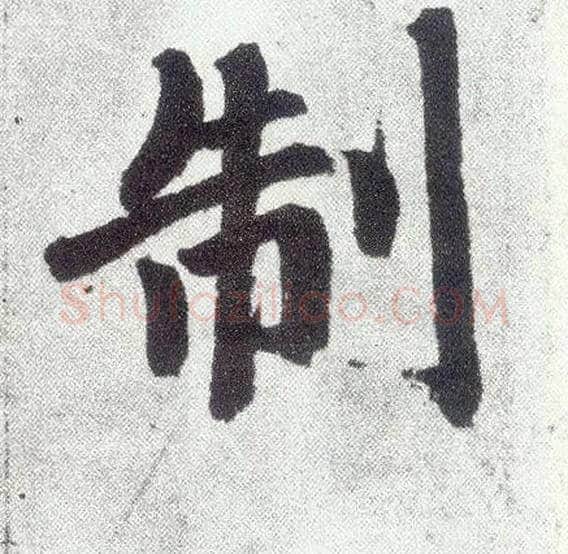 制
Shufaziliao.COM